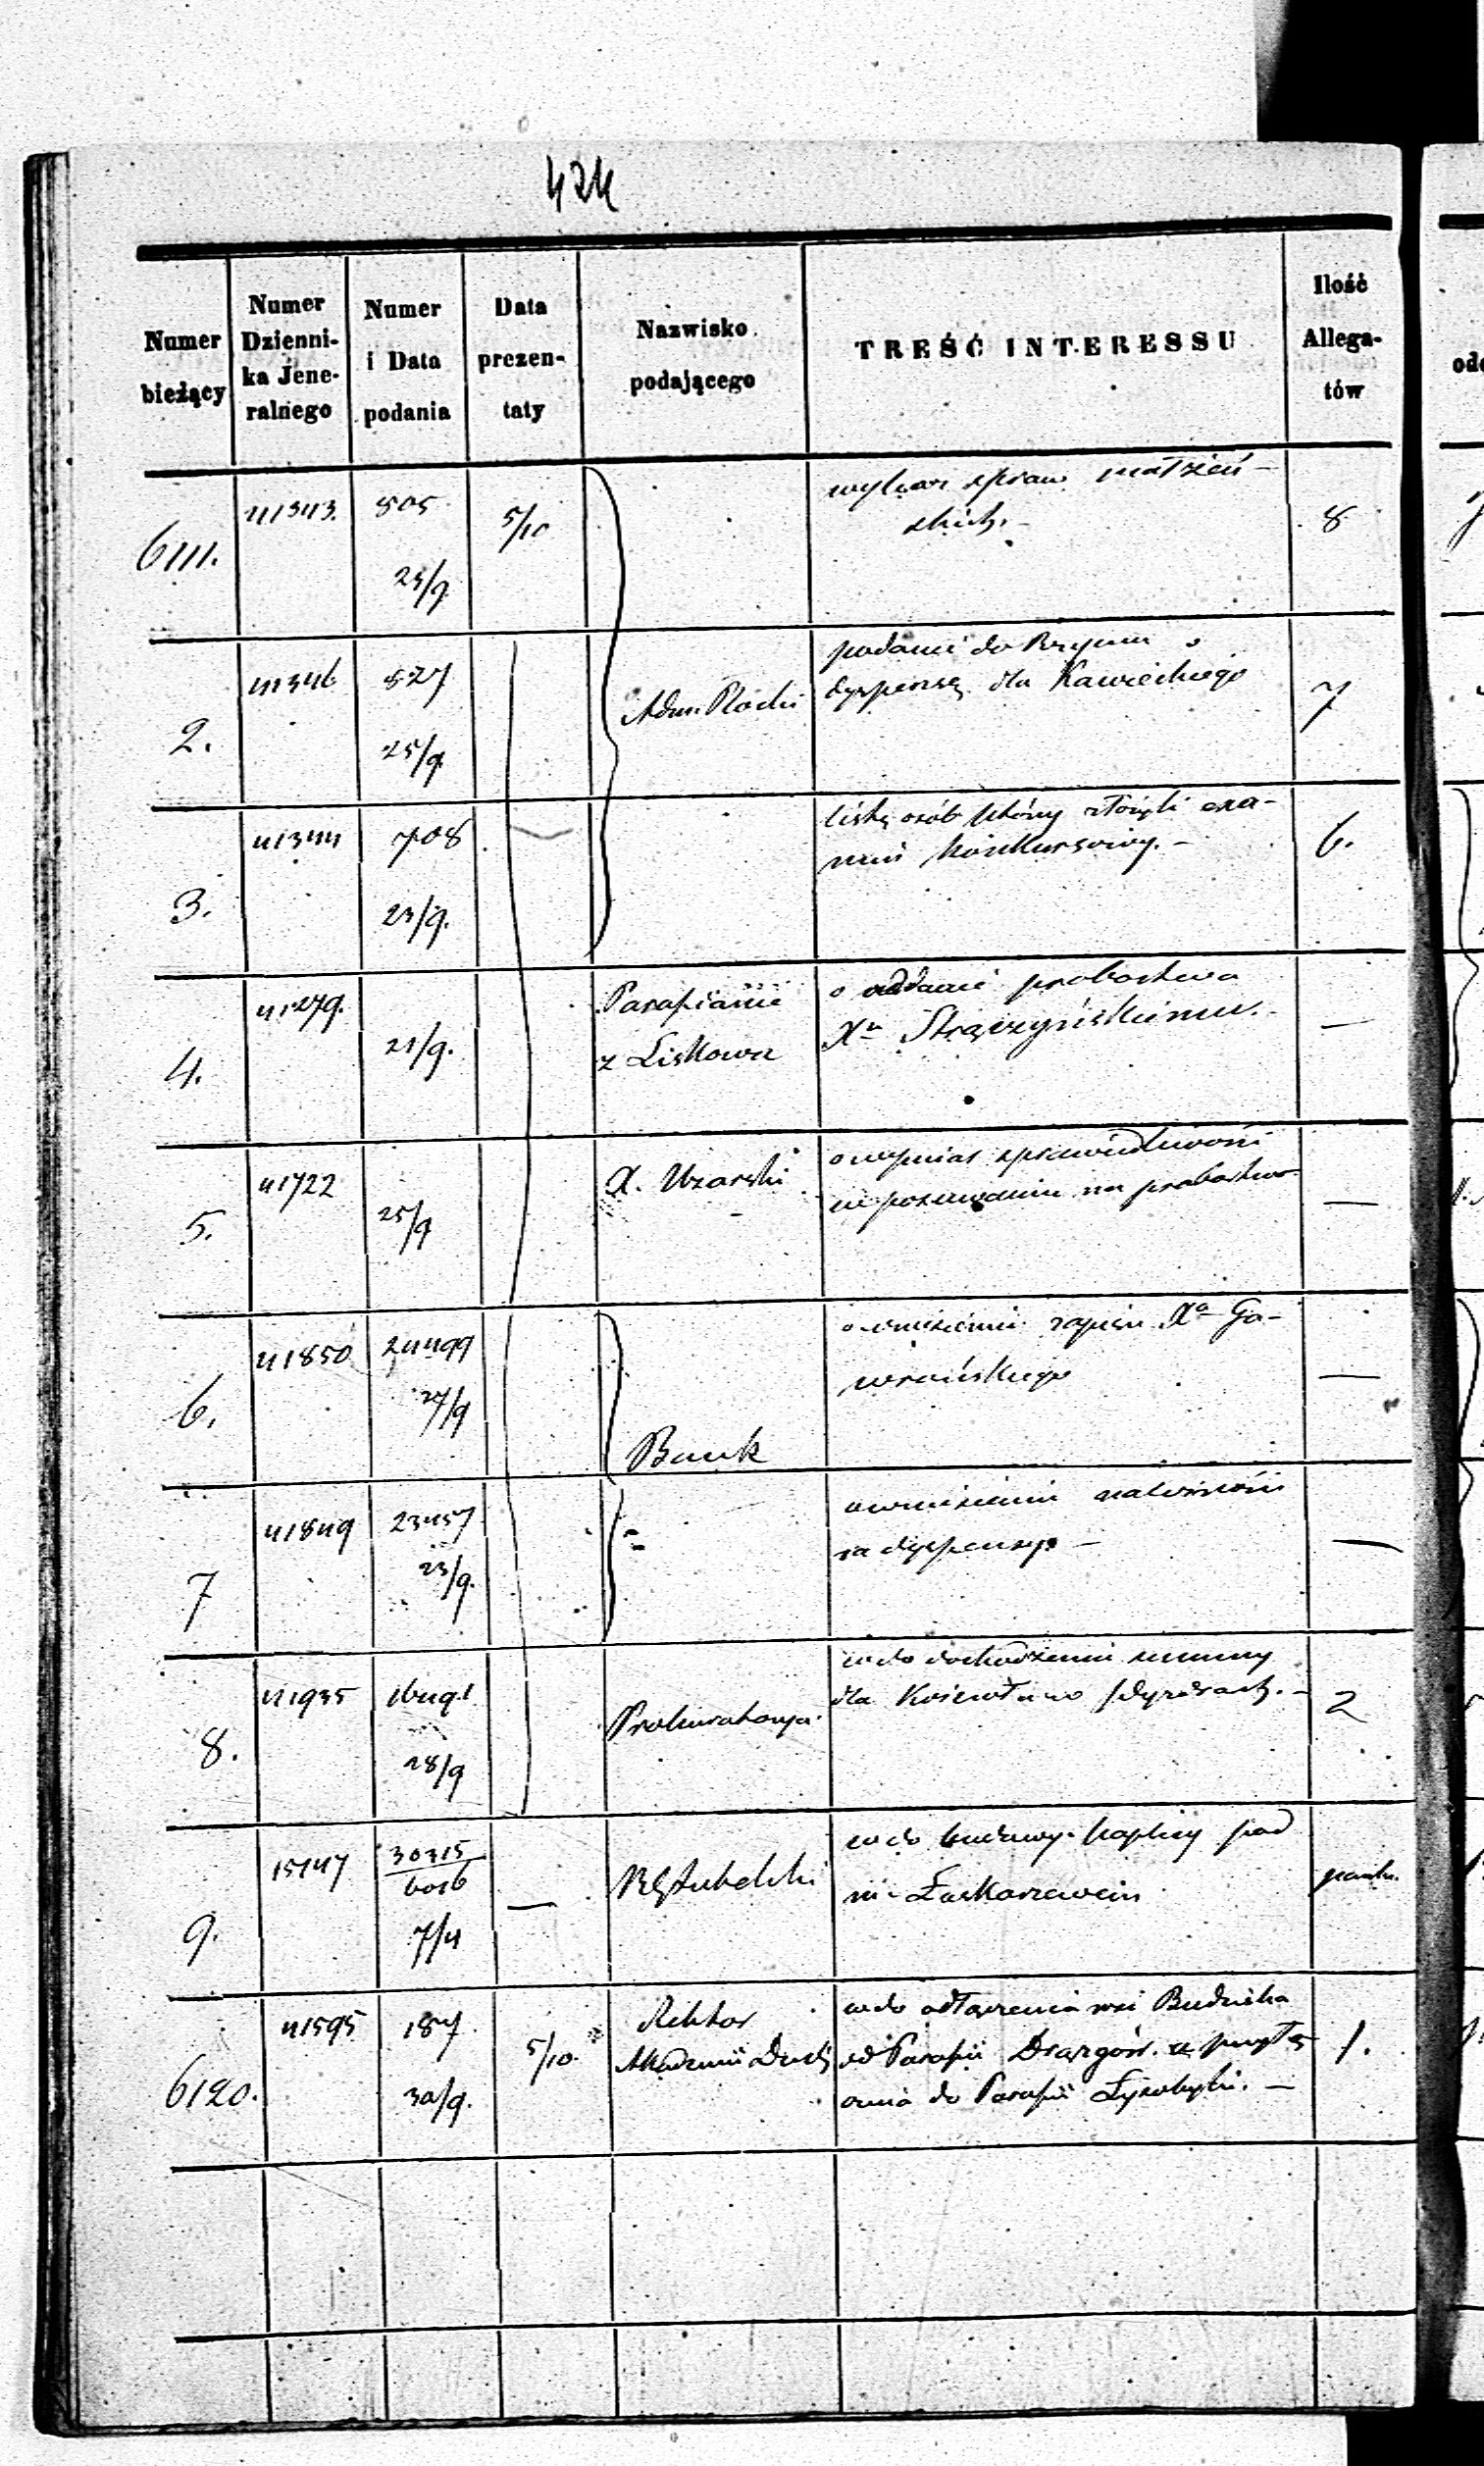 424
Numer bieżący
Numer Dzienni- ka Jene- ralnego
Numer i Data podania
Data prezen- taty
Nazwisko podającego
TREŚĆ INTERESSU
Ilość Allega- tów
6111. 41343. 805 25/9 5/10 wykaz spraw małżeń-
skich.- 8
2. 41346 827 25/9 Adm. Płocki podanie do Rzymu o
dyspensę dla Kawieckiego 7
3. 41344 708 23/9. listę osób którzy złożyli exa-
men konkursowy.- 6.
4. 41279. 21/9. Parafianie o oddanie probostwa
z Liskowa Xu Strączyńskiemu. —
5. 41722 25/9 X. Uzarski o wymiar sprawiedliwości
na probostwo —
6. 41850 24499 27/9 Bank o wniesienie Xa Ga-
wrońskiego —
7 41849 23457 23/9. = o wniesienie należności
za dyspensy. — —
8. 41935 16491 28/9 Prokuratorya co do dochodzenia summy
dla Kościoła w 2
9. 15147 30315/6016 7/4 — co do budowy kaplicy pod
m. Łaskarzewem
6120. 41595 187. 30/9. 5/10. Rektor co do odłączenia wsi Budziska
Akademii Duch od Parafii Drązgów. a przyłą
czenia do Parafii Łysobyki. — 1.